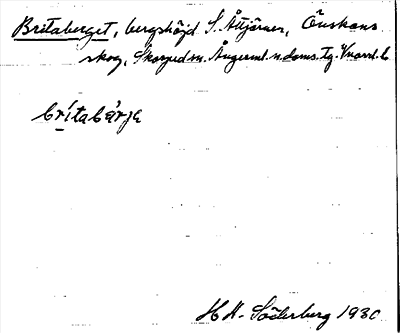 Britaberget, bergshöjd S. Åttjärner, Önskans
skog, Skorped sn. Ångerml. n. doms. tg.
brítabärje
H. A. Söderberg 1930